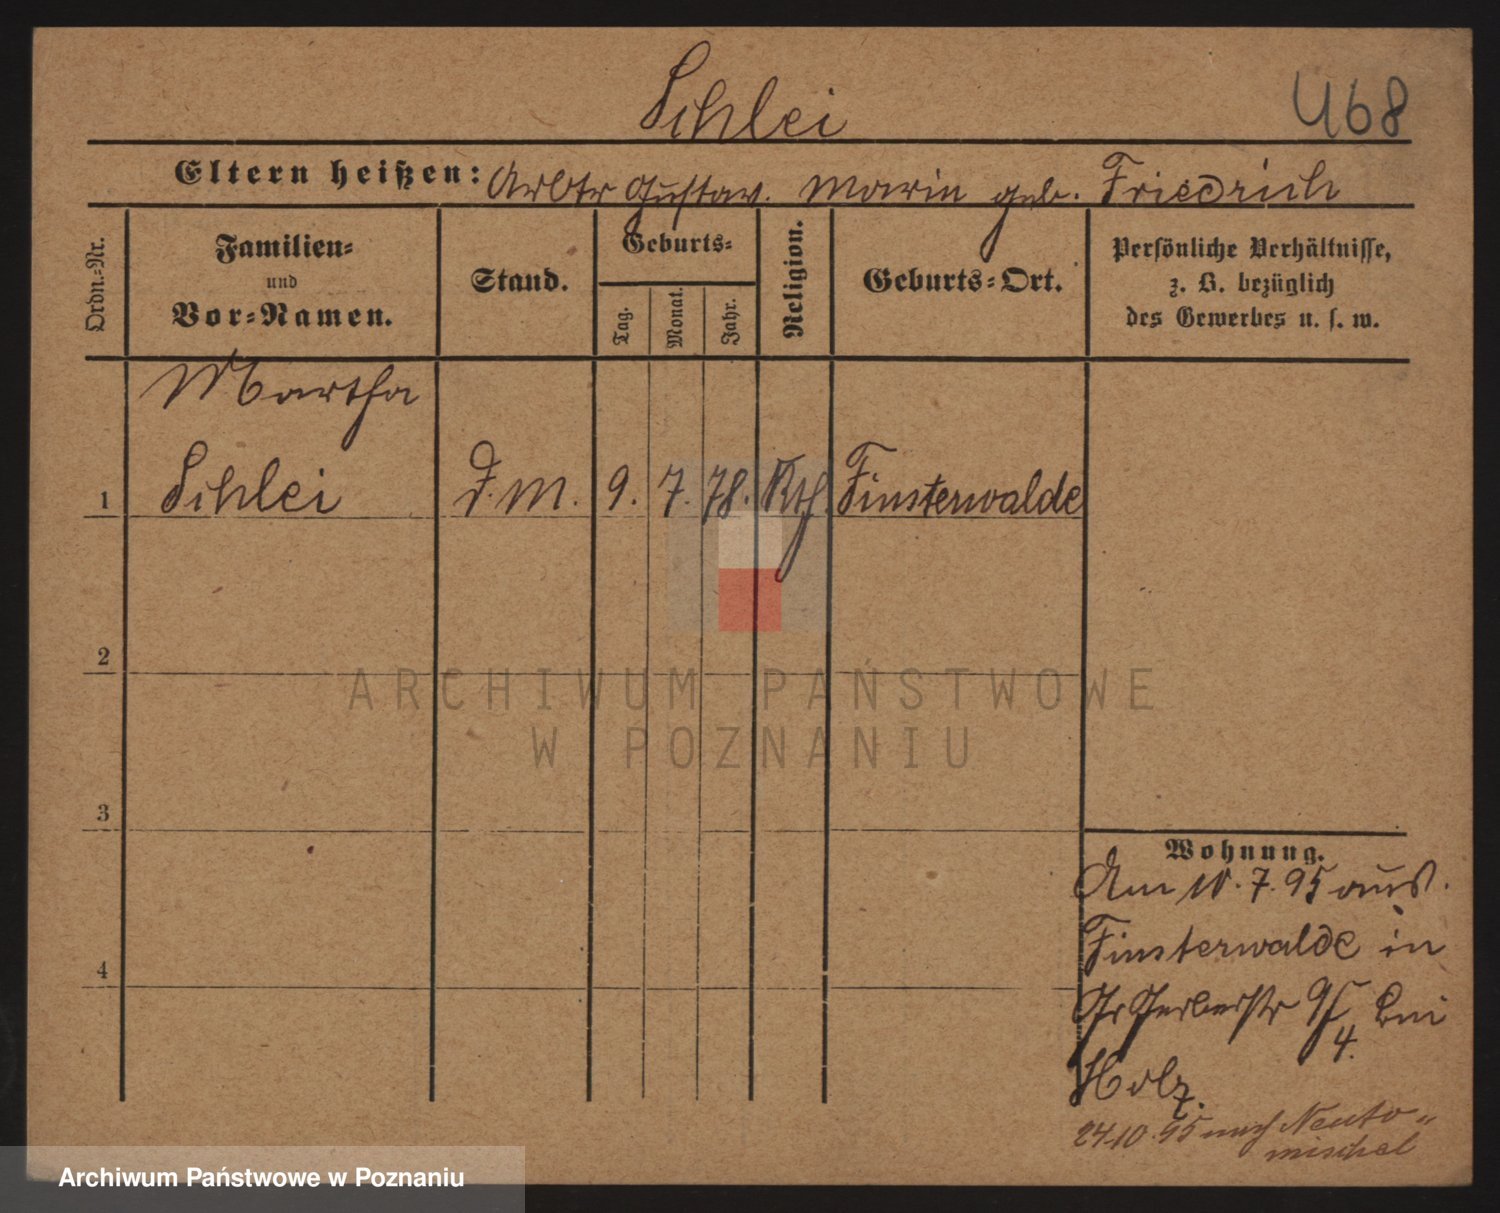 Schlei
468
Eltern heißen: Arbtr Gustav. Marie geb. Friedrich
Ordn.=Nr.
Familien=
und
Vor=Namen.
Stand.
Geburts=
Tag.
Monat.
Jahr.
Religion.
Geburts=Ort.
Persönliche Verhältnisse,
z. B. bezüglich
des Gewerbes u. s. w.
Martha
1 Schlei D. M. 9. 7. 78. Kth. Finsterwalde
2
3
4
Wohnung.
Am 10. 7. 95 aus
Finsterwalde in
Gr Gerberstr bei
4.
Holz.
24.10.95 nach Neuto=
mischel
ARCHIWUM PAŃSTWOWE
W POZNANIU
Archiwum Państwowe w Poznaniu